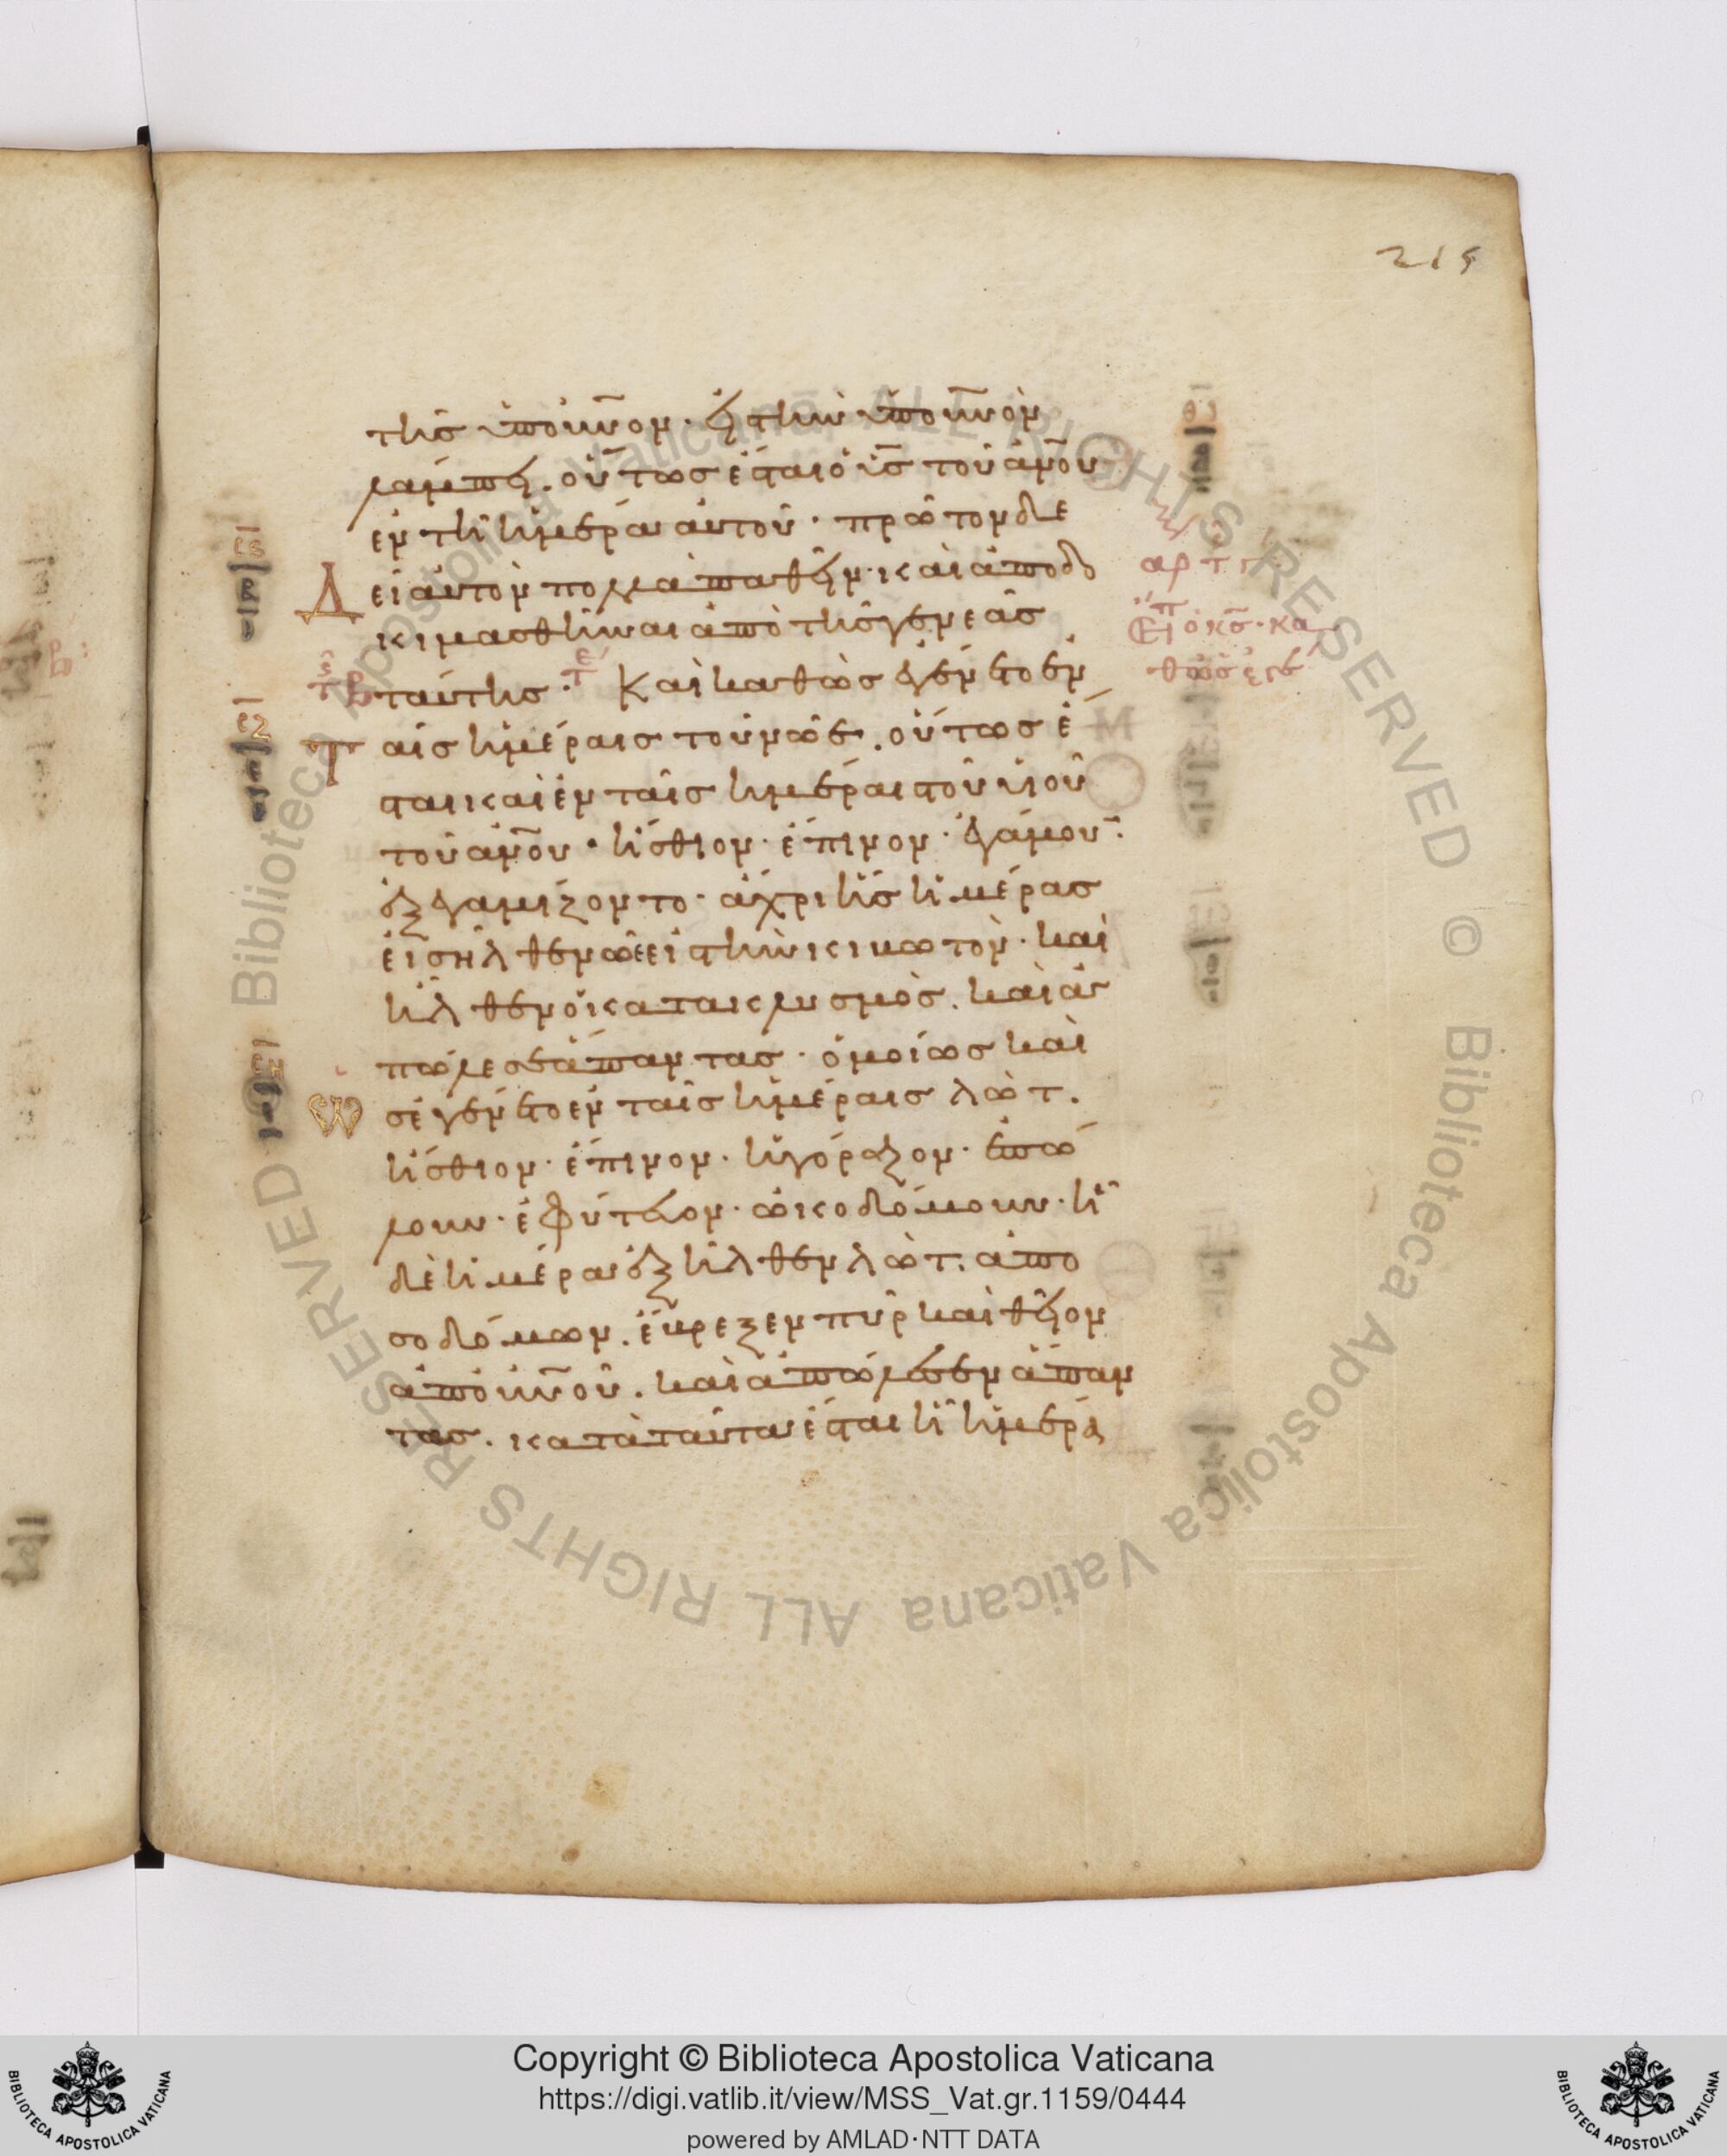 219
τῆς ὑπ' οὐν͞ον· εἰς τὴν ὑπ' οὐν͞ὸν
λάμπει. οὕτως ἔσται ὁ υ͞ς τοῦ αν͞ου
ἐν τῆ ἡμέρα αὐτοῦ· πρῶτον δὲ
Δεῖ αὐτὸν πολλὰ παθεῖν· καὶ ἀποδο
κιμασθῆναι ἀπὸ τῆς γενεᾶς
ταύτης· Καὶ καθὼς ἐγένετο ἐν
Ταῖς ἡμέραις τοῦ νῶε. οὕτως ἔ
σται καὶ ἐν ταῖς ἡμέραι τοῦ υἱοῦ
τοῦ αν͞ου· ἤσθιον· ἔπινον· ἐγάμουν·
ἐξεγαμίζοντο· ἄχρι ἧς ἡμέρας
εἰσῆλθεν νῶε εἰς τὴν κιβωτόν· καὶ
ἦλθεν ὁ κατακλυσμὸς. καὶ ἀ
πώλεσεν ἅπαντας· ὁμοίως καὶ
ὡς ἐγένετο ἐν ταῖς ἡμέραις λὼτ.
ἤσθιον· ἔπινον· ἠγόραζον· ἐπώ
λουν· ἐφύτευον· ὠικοδόμουν· ἧ
δὲ ἡμέρα ἐξῆλθεν λὼτ ἀπὸ
σοδόμων. ἔβρεξεν πῦρ καὶ θεῖον
ἀπ' οὐν͞οῦ. καὶ ἀπώλεσεν ἅπαν
τας. κατὰ ταῦτα ἔσται ἧ ἡμέρα
Εἶπ ὁ κ͞ς· κα
θὼς ἐγέ
Copyright © Biblioteca Apostolica Vaticana
https://digi.vatlib.it/view/MSS_Vat.gr.1159/0444
powered by AMLAD·NTT DATA
BIBLIOTECA APOSTOLICA VATICANA
BIBLIOTECA APOSTOLICA VATICANA
© Biblioteca Apostolica Vaticana ALL RIGHTS RESERVED